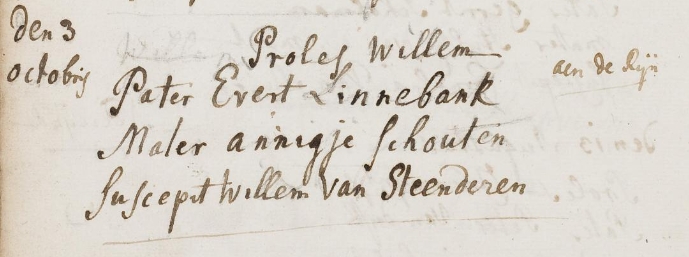 den 3
octobris
Proles Willem
aen de Rijn
Pater Evert Linnebank
Mater annigje Schouten
Suscepit Willem van Steenderen